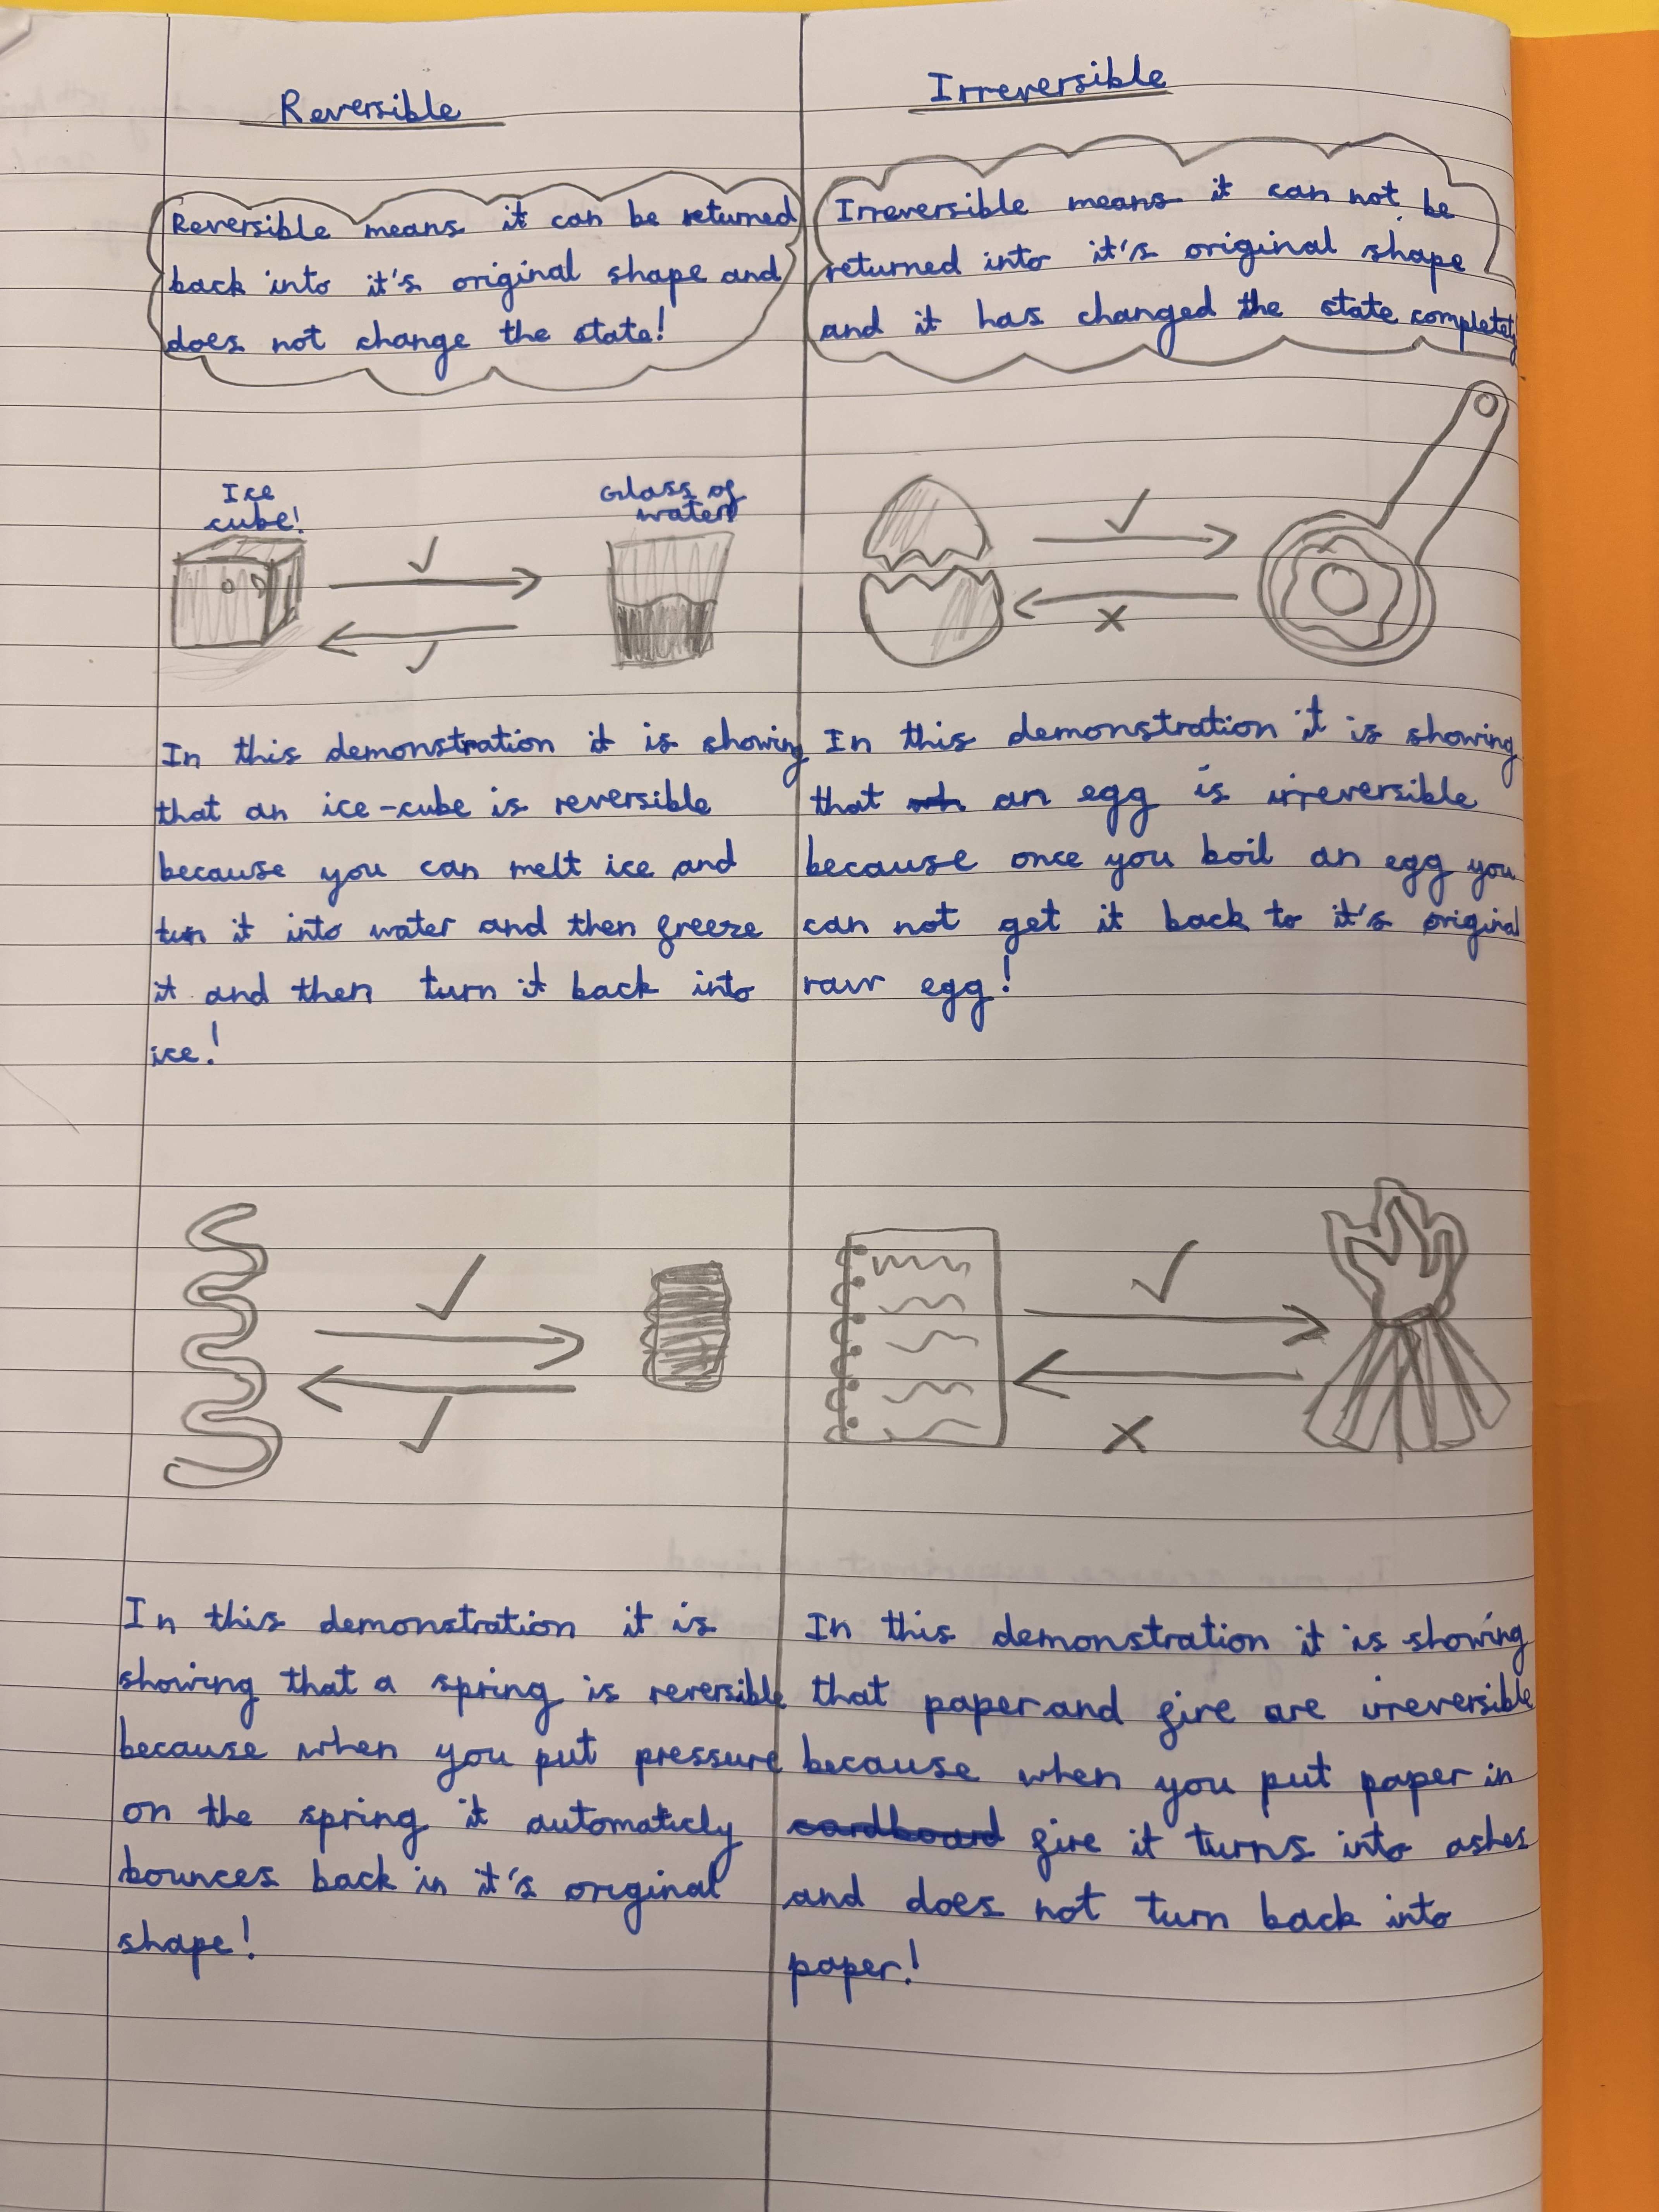 Reversible
Reversible means it can be returned
back into it's original shape and
does not change the state!
Ice
cube!
Glass of
water
In this demonstration it is showing
that an ice-cube is reversible
because you can melt ice and
turn it into water and then freeze
it and then turn it back into
ice!
In this demonstration it is
showing that a spring is reversible
because when you put pressure
on the spring it automaticly
bounces back in it's original
shape!
Irreversible
Irreversible means it can not be
returned into it's original shape
and it has changed the state completely
In this demonstration it is showing
that an egg is irreversible
because once you boil an egg you
can not get it back to it's original
raw egg!
In this demonstration it is showing
that paper and fire are irreversible
because when you put paper in
cardboard fire it turns into ashes
and does not turn back into
paper!